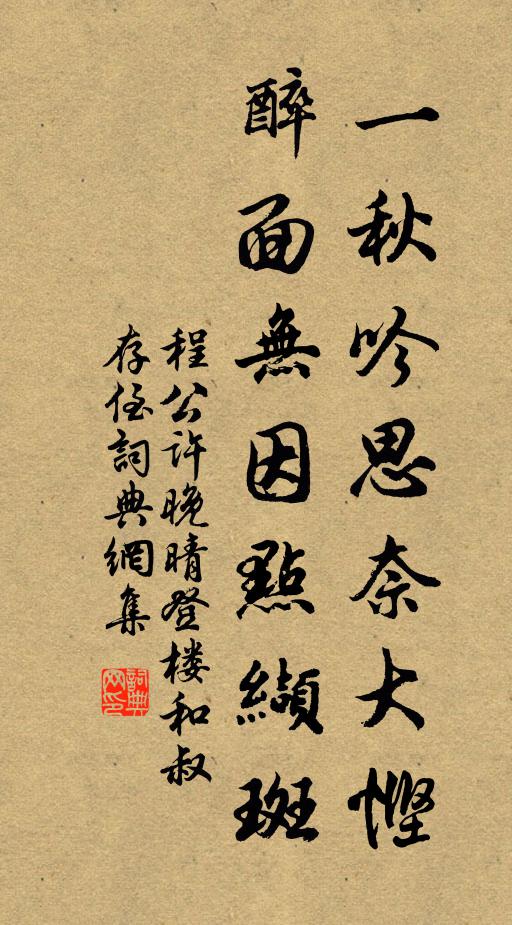 一秋吟思奈大慳
醉面無因點纈斑
程公許晚晴登楼和叔
存侄詞典網集
詞典网印